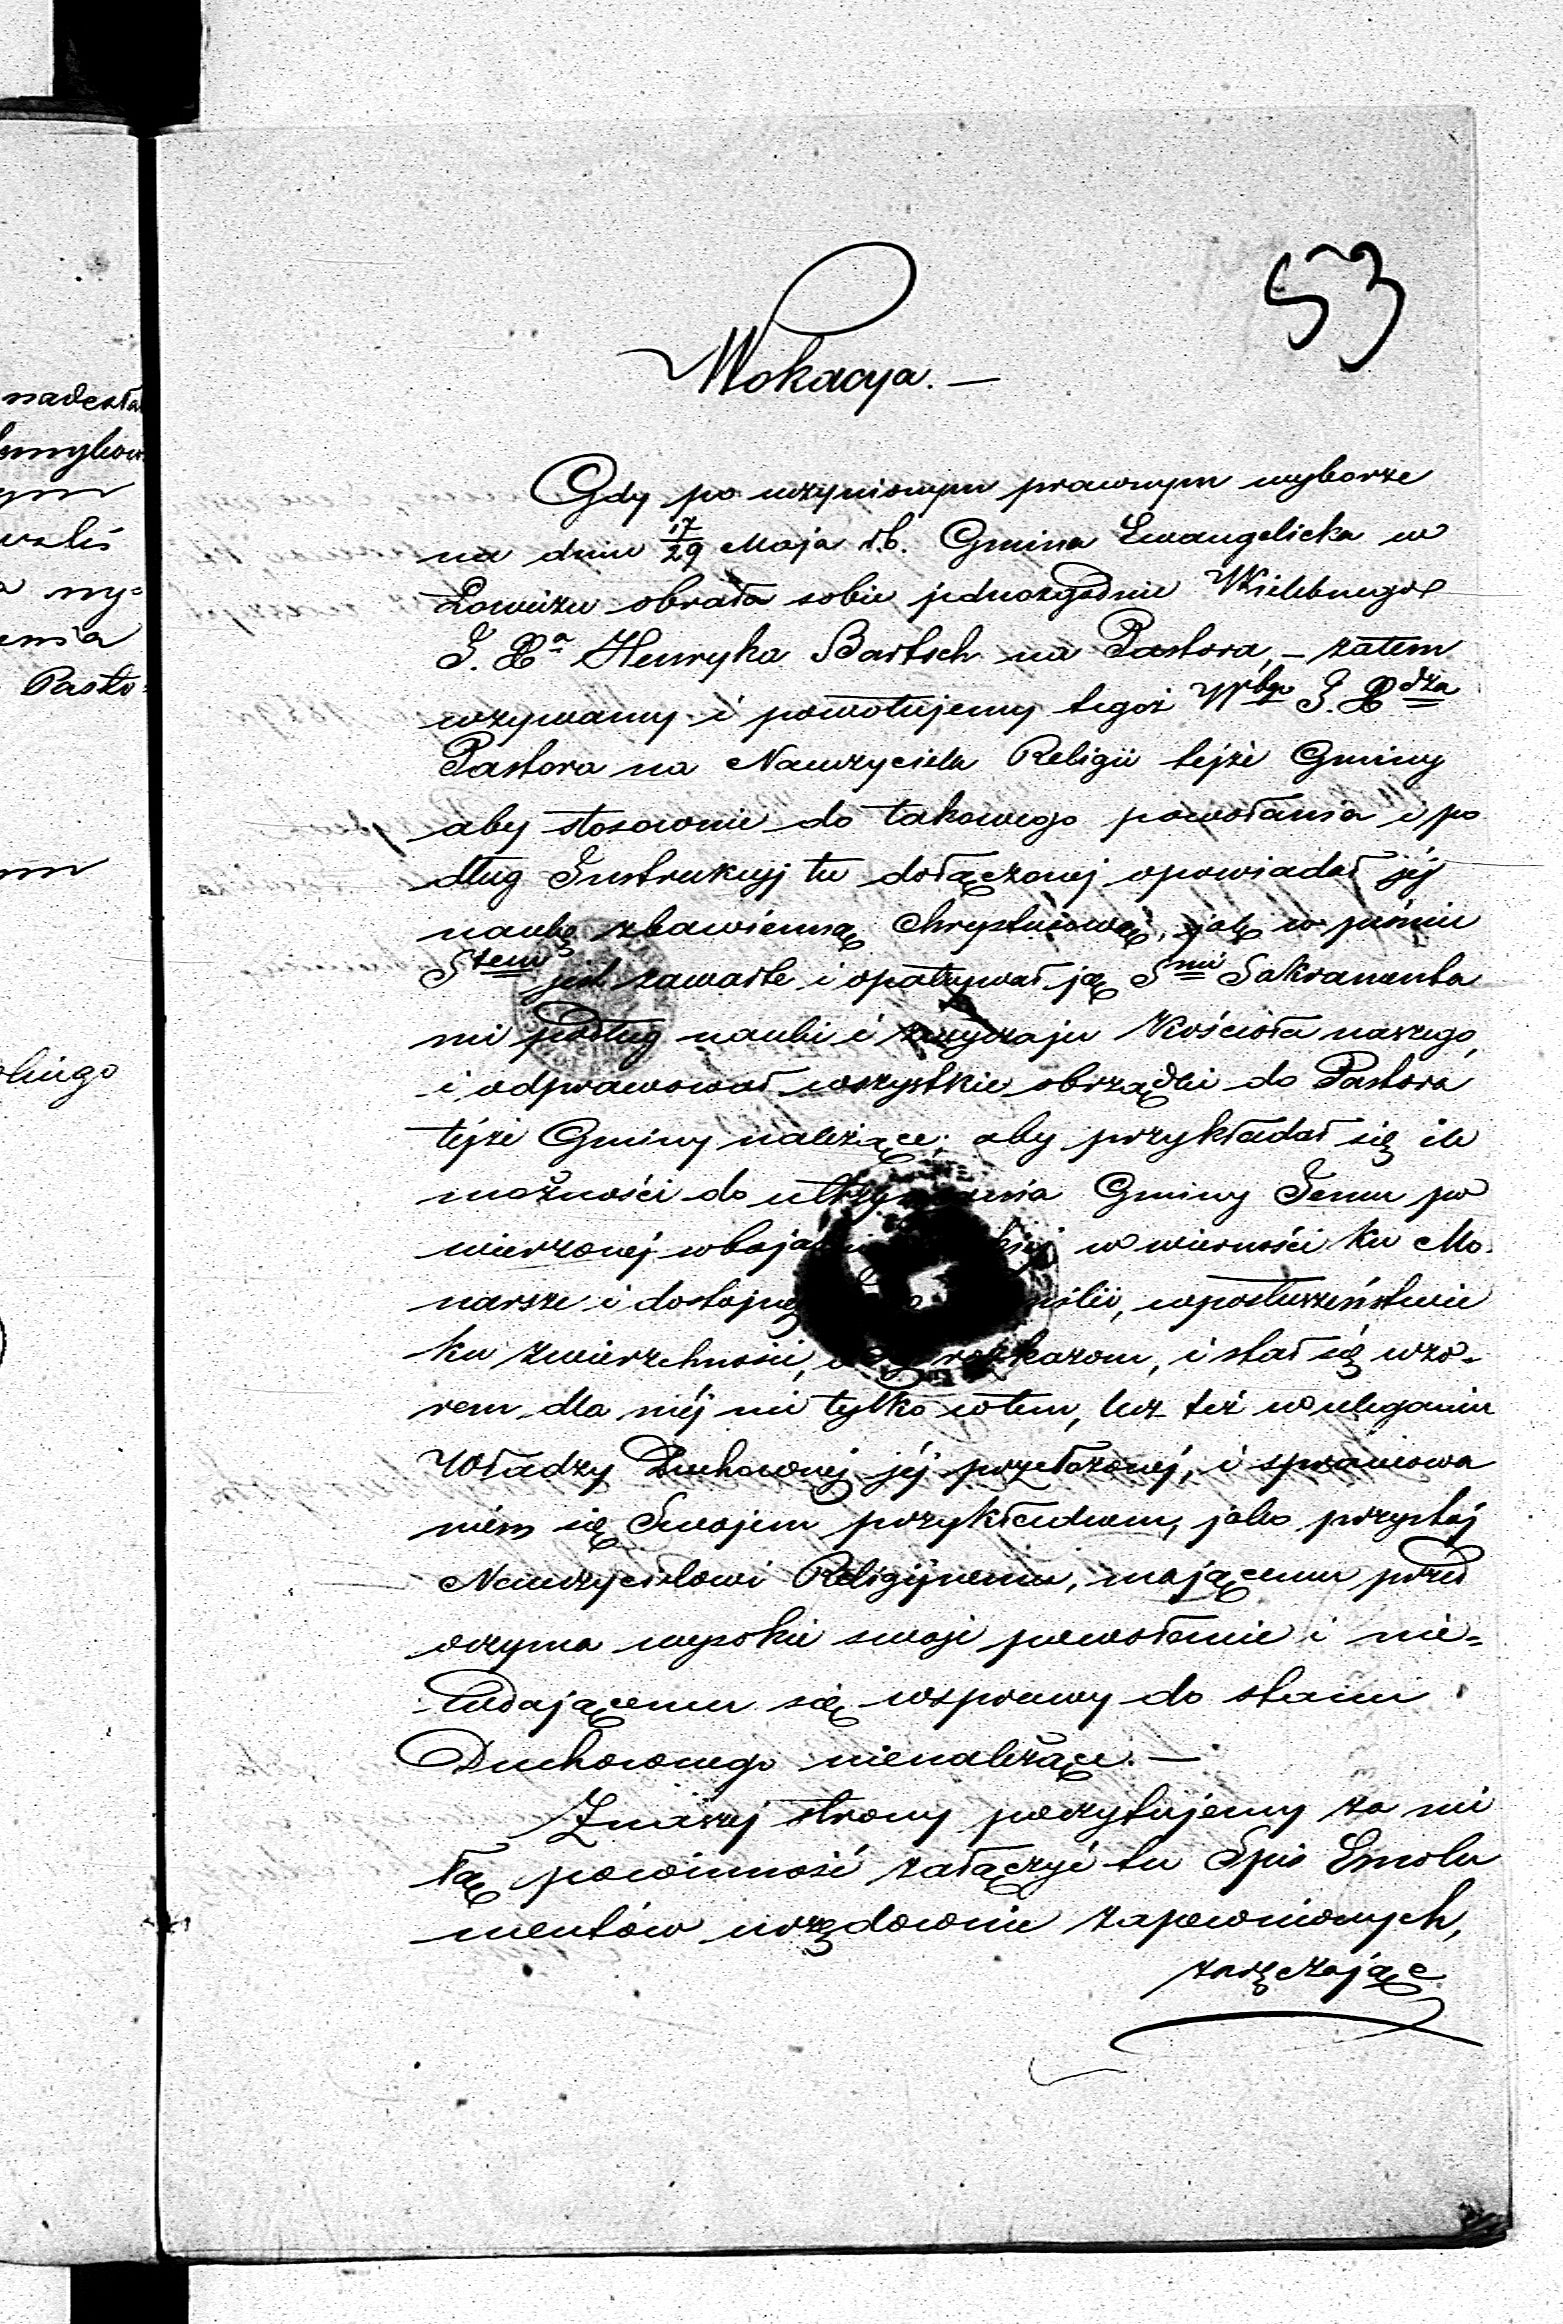 53
Wokacya. —
Gdy po uczynionym prawnym wyborze
na dniu 17/29 Maja r.b. Gmina Ewangelicka w
Łowiczu obrała sobie jednozgodnie Wielebnego
J. Xa Henryka Bartsch na Pastora, – zatem
wzywamy i powołujemy tegoż Wbgo J. Xdza
Pastora na Nauczyciela Religii tejże Gminy
aby stosownie do takowego powołania i po
dług Instrukcyj tu dołączonej opowiadał jéj
naukę zbawienną Chrystusową, jak w piśmie
Stem jest zawarte i opatrywał ją Smi Sakramenta
mi podług nauki i zwyczaju Kościoła naszego,
i odprawował wszystkie obrządki do Pastora
téjże Gminy należące; aby przykładał się ile
możności do utrzymania Gminy Jemu po
wierzonej w bojaźni w wierności ku Mo-
narsze i dostojnej milii, w posłuszeństwie
ku zwierzchności, rozkazom, i stał się wzo-
rem dla niéj nie tylko w tem, lecz też w uleganiu
Władzy Duchownéj jéj przełożonéj, i sprawowa
niem się Swojem przykładnem, jako przystoj
Nauczycielowi Religijnemu, mającemu przed
oczyma wysokie swoje powołanie i nie=
wdającemu się w sprawy do stanu
Duchownego nienależące. —
Z naszej strony poczytujemy za mi
łą powinność załączyć tu Spis Emolu
mentów urzędownie zapewnionych,
zaręczając
nadesła
ym
ny=
enia
Pasto=